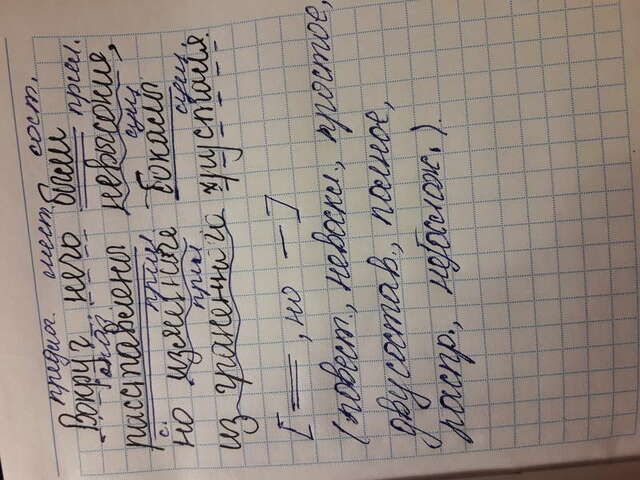 предлог. мест. сост.
Вокруг него были
глаг. прил.
расставлены невысокие,
с. прил. сущ.
но изящные бокалы
прил сущ.
из граненного хрусталя
[ == , но — ]
(повест., невоскл., простое,
двусостав., полное,
распр., неослож.).